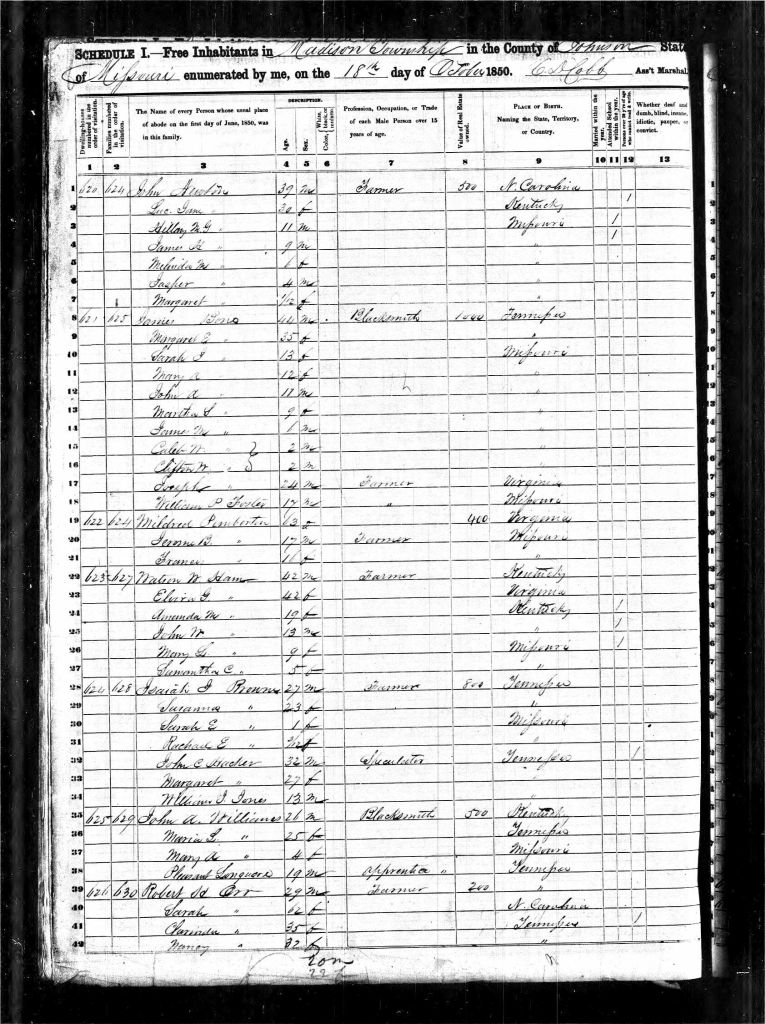 SCHEDULE I.—Free Inhabitants in Madison Township in the County of Johnson State
of Missouri enumerated by me, on the 18th day of October 1850. Ass't Marshal
Dwelling-houses numbered in the order of visitation.
Families numbered in the order of visitation.
The Name of every Person whose usual place of abode on the first day of June, 1850, was in this family.
DESCRIPTION.
Age.
Sex.
Color, White, black, or mulatto.
Profession, Occupation, or Trade of each Male Person over 15 years of age.
Value of Real Estate owned.
PLACE OF BIRTH. Naming the State, Territory, or Country.
Married within the year.
Attended School within the year.
Whether deaf and dumb, blind, insane, idiotic, pauper, or convict.
1 2 3 4 5 6 7 8 9 10 11 12 13
1 620 624 John Newton 39 m Farmer 500 N. Carolina
2 Luc. Jane " 20 f Kentucky 1
3 M. G " 11 m Missouri 1
4 James H " 9 m " 1
5 Melinda M " 6 f "
6 Jasper " 4 m "
7 Margaret " 7/12 f "
8 621 625 James 44 m Blacksmith 1000 Tennessee
9 Margaret E " 35 f "
10 Sarah J " 13 f Missouri
11 Mary A " 12 f "
12 John A " 11 m "
13 Martha S " 9 f "
14 James M " 6 m "
15 Caleb W. " 2 m "
16 Clifton W " 2 m "
17 Joseph " 24 m Farmer Virginia
18 William P. Foster 17 m " Missouri
19 622 626 Mildred Pemberton 63 f 400 Virginia
20 Jerome B. " 17 m Farmer Missouri
21 Frances " 16 f "
22 623 627 Watson W. Ham 42 m Farmer Kentucky
23 Elvira G " 42 f Virginia
24 Amanda M " 19 f Kentucky 1
25 John W " 13 m " 1
26 Mary L " 9 f Missouri 1
27 Samantha C " 5 f "
28 624 628 Isaiah J Brown 27 m Farmer 800 Tennessee
29 Susanna " 23 f "
30 Sarah E " 1 f Missouri
31 Rachael E " f "
32 John C. 32 m Speculator Tennessee 1
33 Margaret " 27 f "
34 William J. Jones 13 m "
35 625 629 John A. Williams 26 m Blacksmith 500 Kentucky
36 Maria L. " 25 f Tennessee
37 Mary A " 4 f Missouri
38 Pleasant 19 m Apprentice " Tennessee
39 626 630 Robert H Orr 29 m Farmer 200 "
40 Sarah " 62 f N. Carolina
41 Clarinda " 35 f Tennessee 1
42 Nancy " 32 f "
20 m
22 f